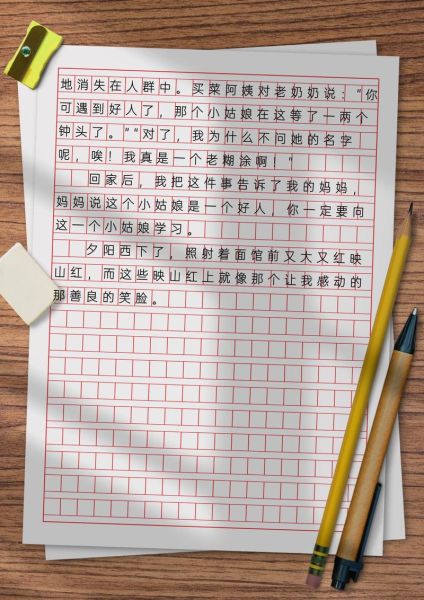 地消失在人群中。买菜阿姨对老奶奶说：“你
可遇到好人了，那个小姑娘在这等了一两个
钟头了。”“对了，我为什么不问她的名字
呢，唉！我真是一个老糊涂啊！”
回家后，我把这件事告诉了我的妈妈，
妈妈说这个小姑娘是一个好人，你一定要向
这一个小姑娘学习。
夕阳西下了，照射着面馆前又大又红映
山红，而这些映山红上就像那个让我感动的
那善良的笑脸。